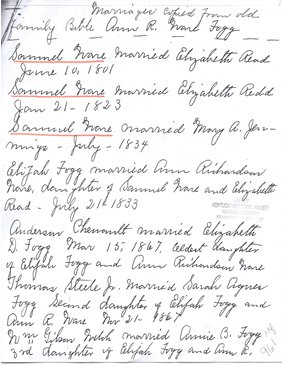 Marriages copied from old
family Bible Ann R. Ware Fogg
Samuel Ware married Elizabeth Read
June 10, 1801
Samuel Ware married Elizabeth Redd
Jan 21 - 1823
Samuel Ware married Mary A. Jen-
nings - July - 1834
Elijah Fogg married Ann Richardson
Ware, daughter of Samuel Ware and Elizabeth
Read - July 21 - 1833
Anderson Chenault married Elizabeth
D. Fogg Mar 15, 1867, oldest daughter
of Elijah Fogg and Ann Richardson Ware
Thomas Steele Jr. married Sarah Agnes
Fogg second daughter of Elijah Fogg and
Ann R. Ware Nov 21 - 1867
Wm Gibson Welch married Annie B. Fogg
3rd daughter of Elijah Fogg and Ann R.